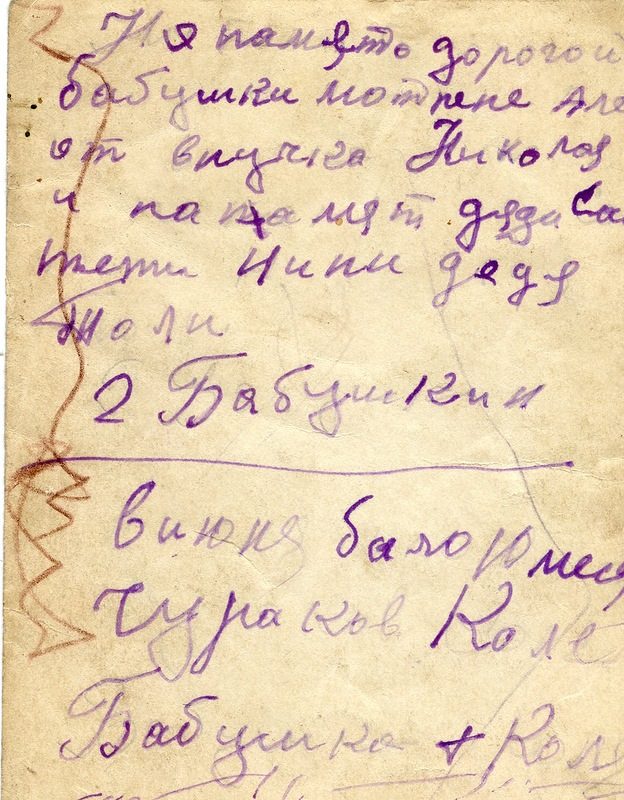 На памято дорогой
бабушки мотрене Але
от внучка Николая
и на памят дяди Са
тети Нини дядя
Толи
г Бабушкин
В июня было 10 меся
Чураков Коле
Бабушка + Коля